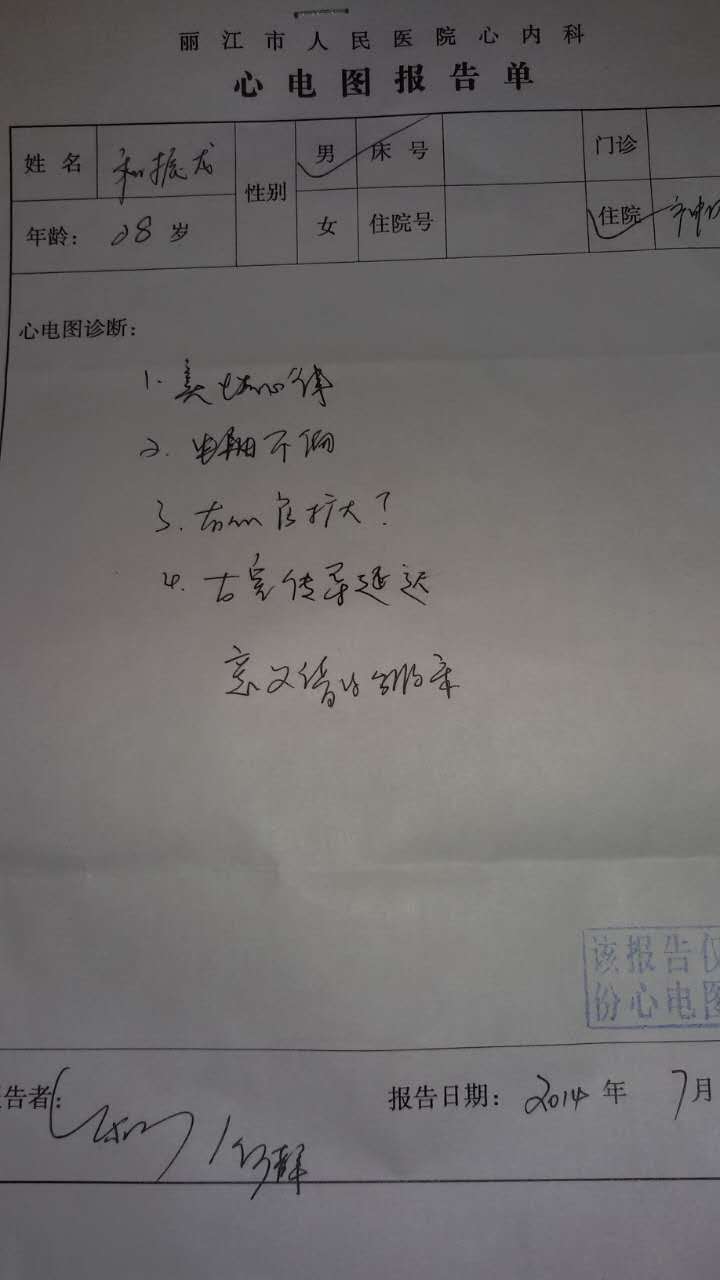 丽江市人民医院心内科
心电图报告单
姓名 和振龙 性别 男 床号 门诊
年龄: 28岁 女 住院号 住院
心电图诊断:
1. 窦性心律
2. 电轴不偏
3. 右心房扩大?
4. 右室传导延迟
意义请结合临床
该报告仅
份心电图
告者: 报告日期: 2014年 7月